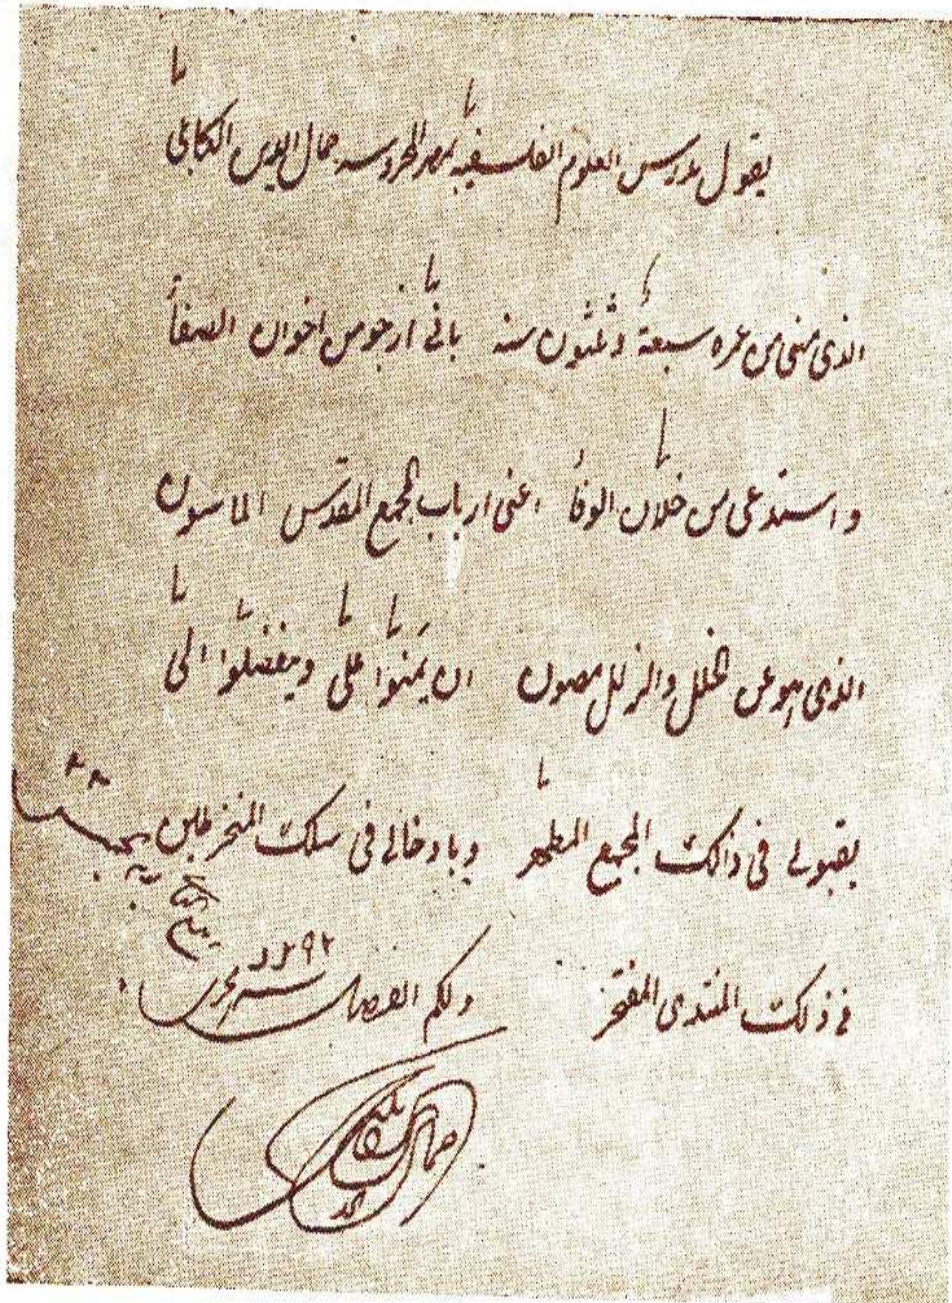 يقول مدرس العلوم الفلسفية بمصر المحروسه جمال الدين الكابلى
الذى مضى من عمره سبعة و ثلثون سنه بانى ارجو من اخوان الصفأ
و استدعى من خلان الوفأ اعنى ارباب المجمع المقدس الماسون
الذى هو عن الخلل والزلل مصون ان يمنوا على ويتفضلوا الى
بقبولى فى ذالك المجمع المطهر و بادخالى فى سلك المنخرطين
فى ذلك المنتدى المفتخر ولكم الفضل
١٢٩٢
جمال الدين